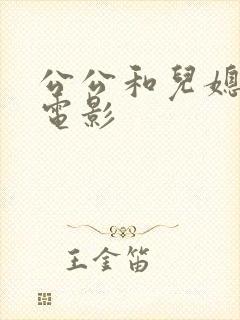 公公和兒媳
電影
王金笛